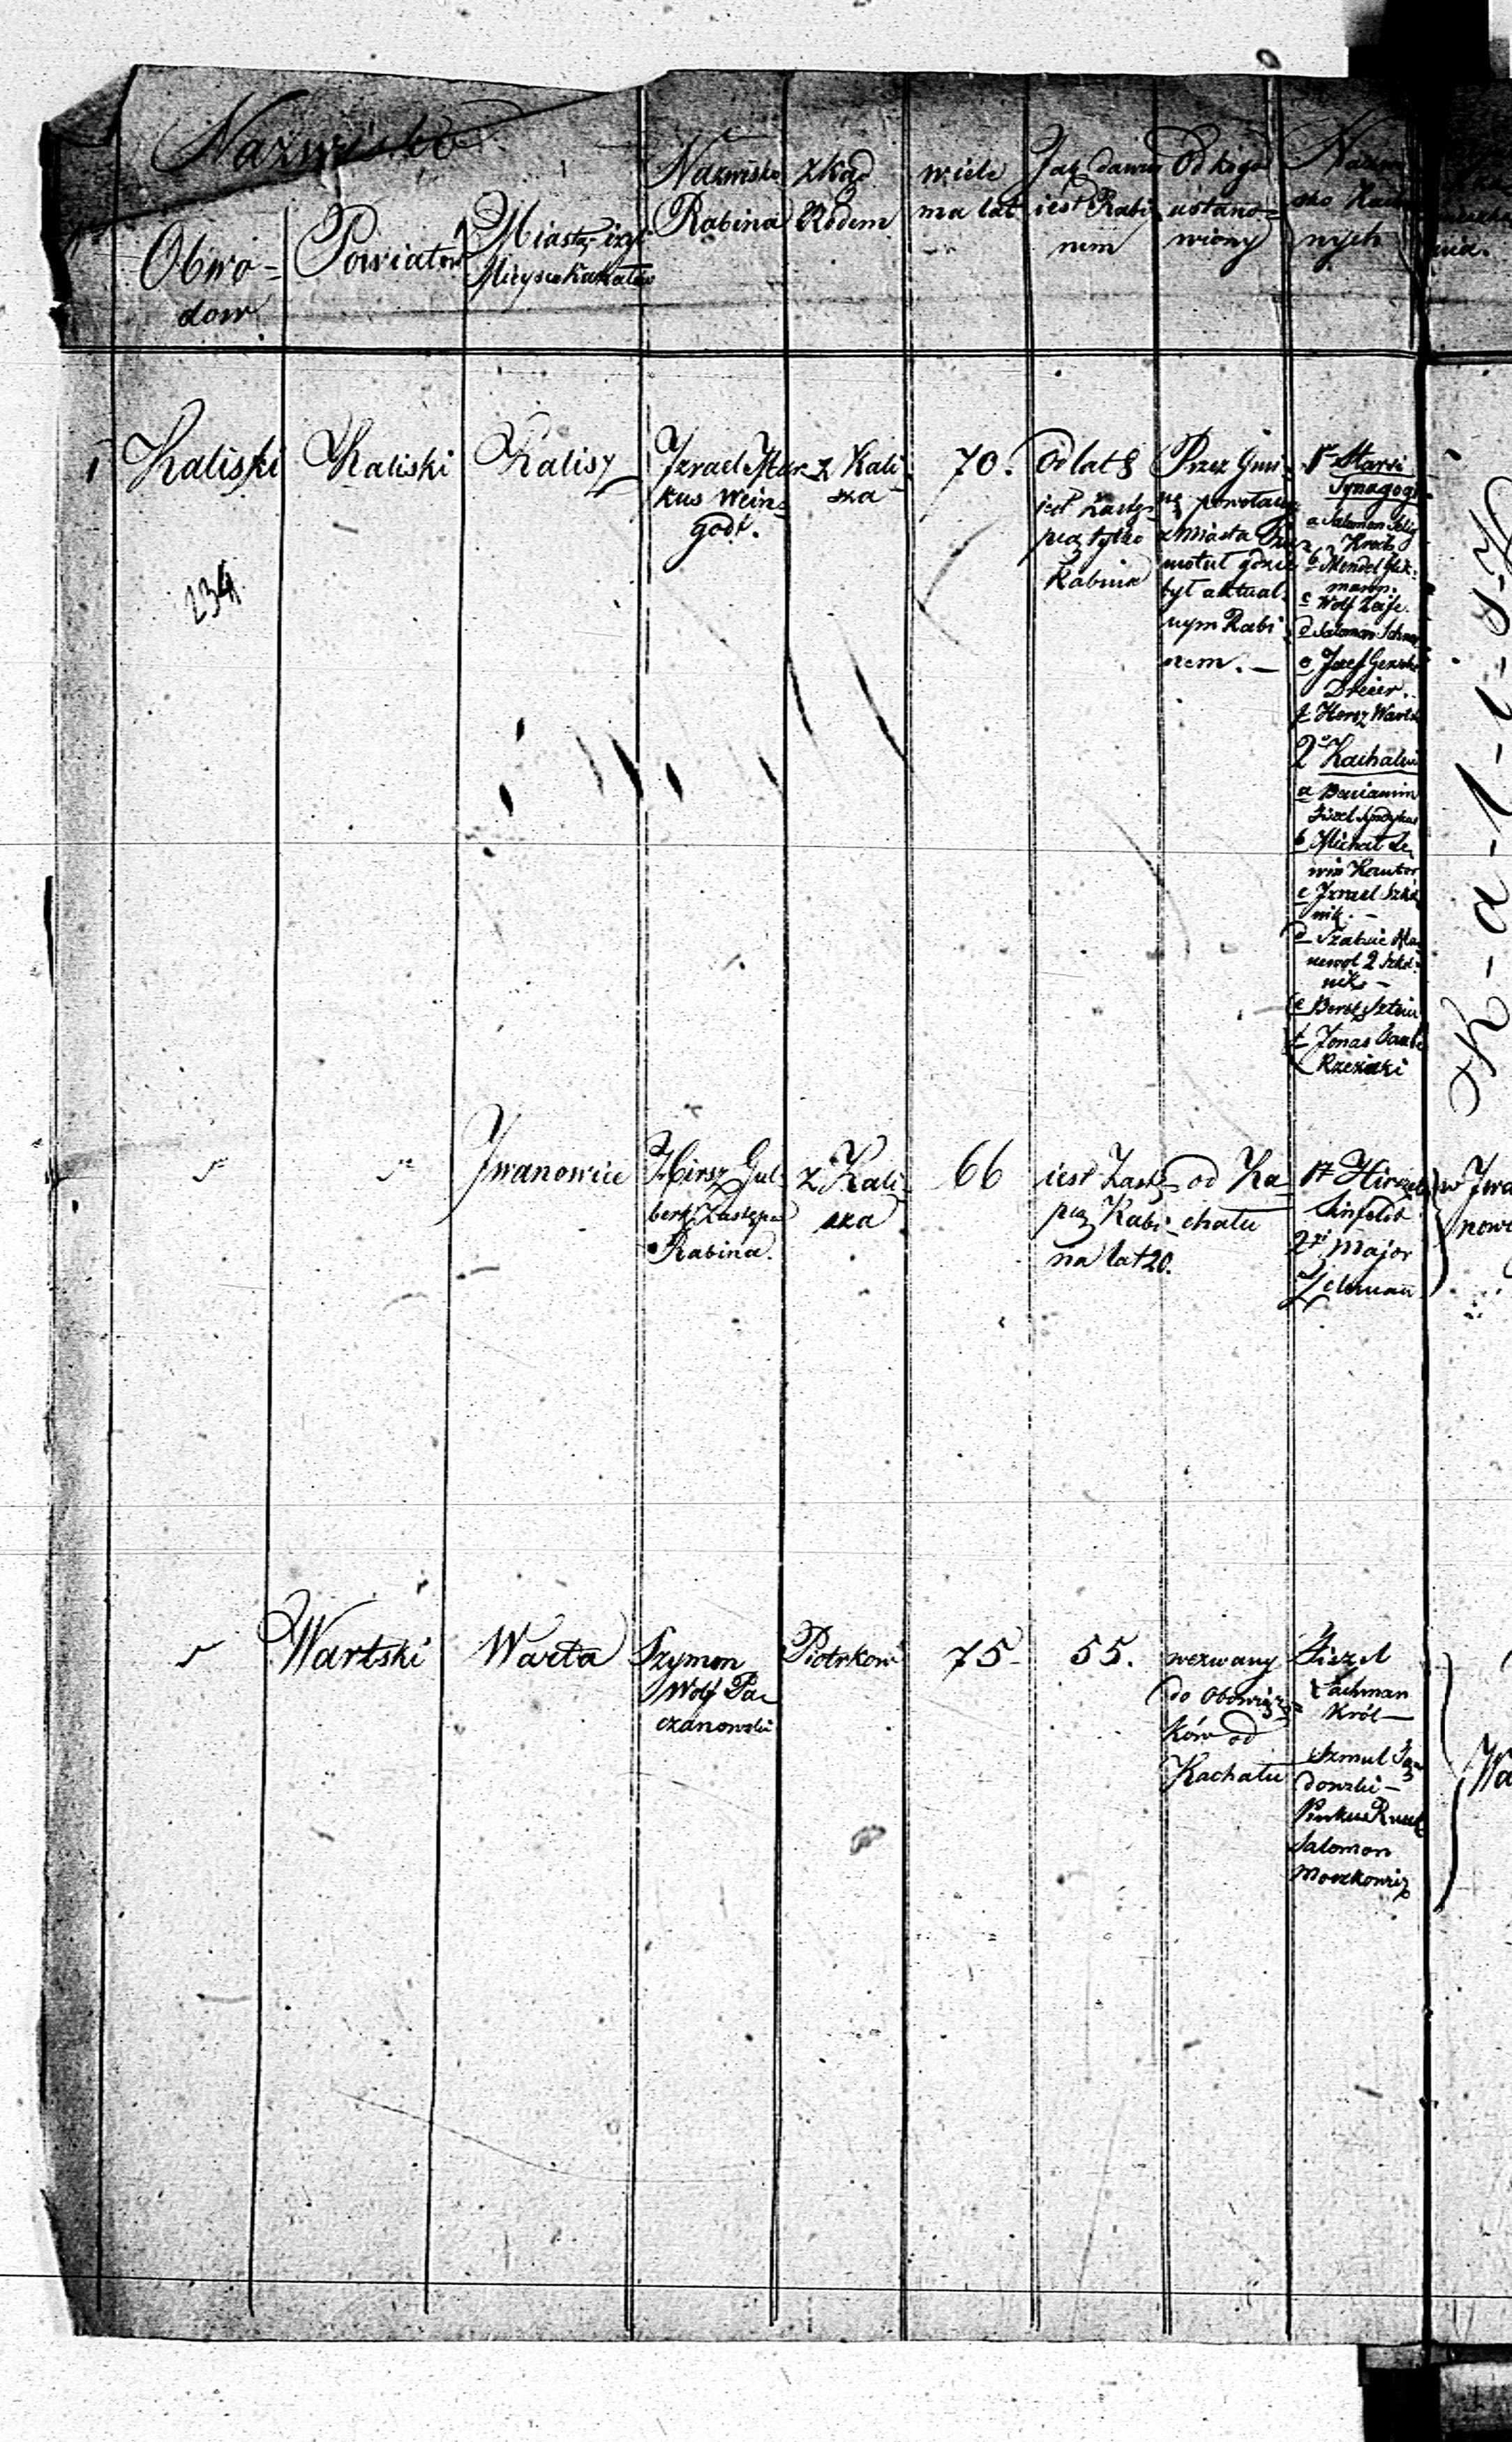 Nazwisko
Obwo-
dow
Powiatow
Miasta, czyli
Mieysca Kahałów
Nazwisko
Rabina
zkąd
Rodem
wiele
ma lat
Jak dawno
iest Rabi
nem
Od kogo
ustano-
wiony
Nazwi
sko Kach
nych
1 Kaliski
234
Kaliski
Kalisz
Izrael Mar
kus Wein-
godt.
z Kali
sza
70.
Od lat 8
jest Zastę-
pcą tylko
Rabina
Przez Gmi-
nę powołany
z Miasta
gdzie
był aktual-
nym Rabi
nem. —
1º Starsi
Synagogi
a Salomon Selig
b Mendel Glik-
mann.
c Wolf
d Salomon
e Josef
Dreier.
f Hersz Warts
2º Kachalni
a Beniamin
Fiszel Syndykus
b Michał Le
win Kantor
c Izrael Szkol
nik. —
d
2 Szkol-
nik —
e Berek Sztein
f Jonas
Rzezaki
K-a-l-i-s-z
Iwanowice
Hirsz Gul
berg Zastępca
Rabina.
z Kali
sza
66
iest Zastę-
pcą Rabi-
na lat 20.
od Ka-
chału
1º Hirszel
2º Major
Zelman
w Iwa
nowi
Wartski
Warta
Szymon
Wolf Pa-
czanowski
Piotrkow
75
55.
wezwany
do obowiąz-
ków od
Kachału
Fiszel
Lachman
Król —
Szmul
dowski —
Pinkus
Salomon
Moszkowicz
Wa